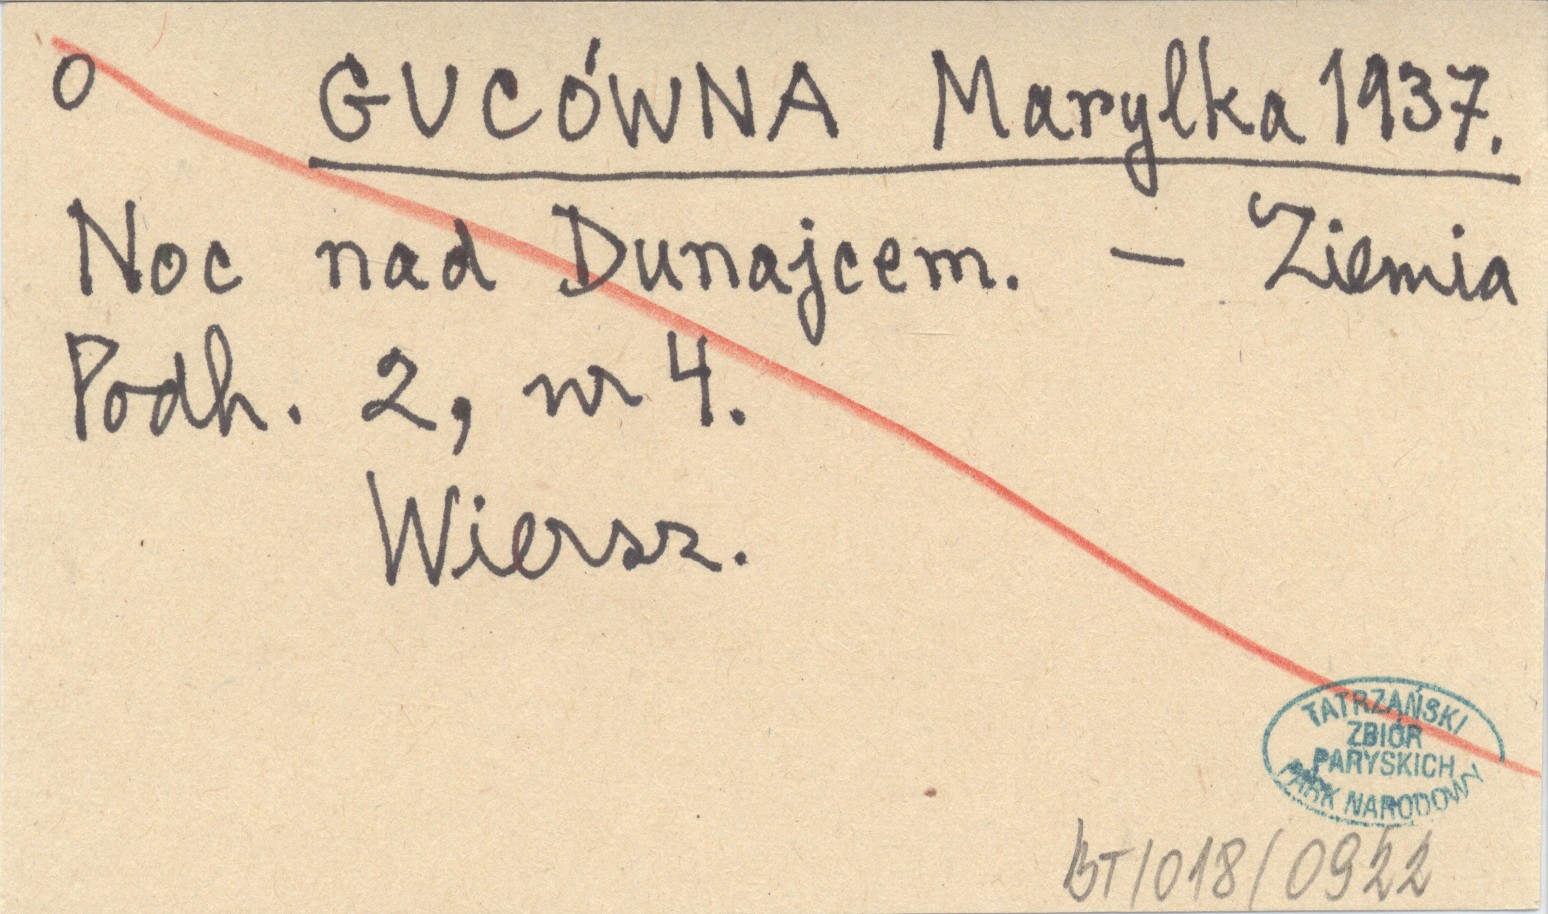 O GUCÓWNA Marylka 1937.
Noc nad Dunajcem. — Ziemia
Podh. 2, nr 4.
Wiersz.
TATRZAŃSKI
ZBIÓR
PARYSKICH
PARK NARODOWY
BT/018/0922